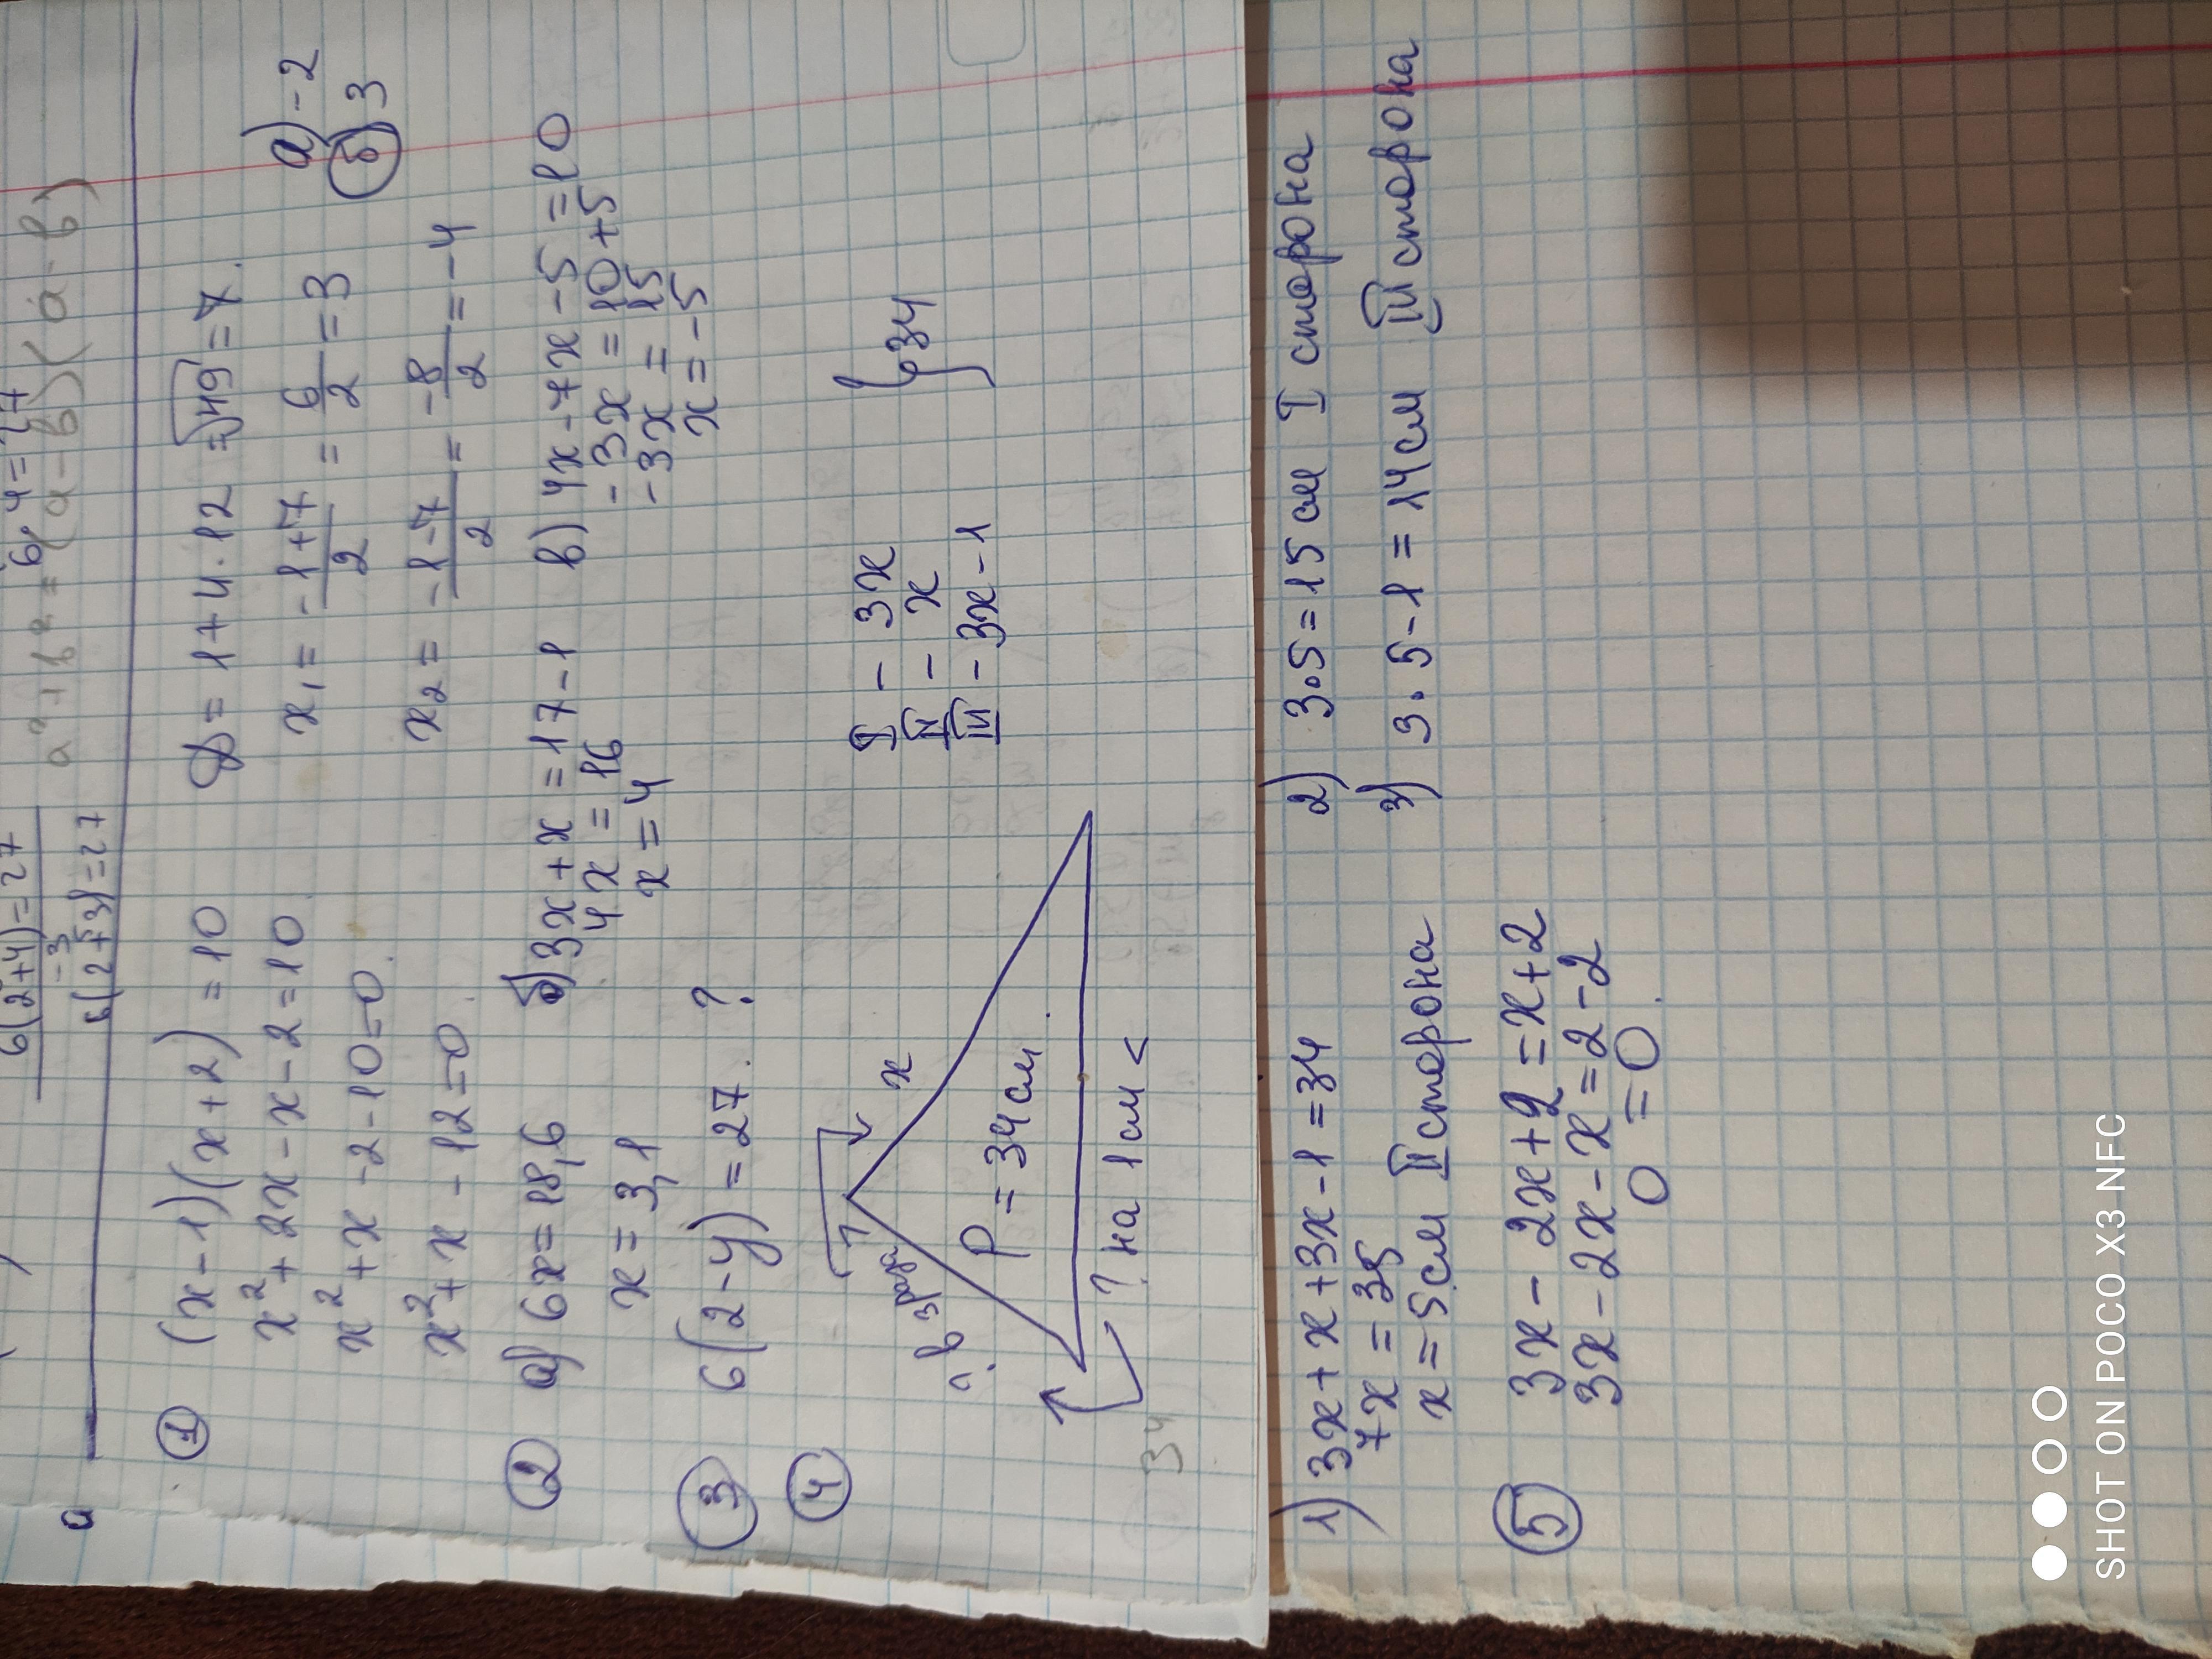 6(2+4)=27
6,4=27
-3
6(2+3)=27
a²+b²=(a-b)(a-b)
① (x-1)(x+2) = 10
x²+2x-x-2=10
x²+x-2-10=0.
x²+x-12=0.
D = 1+4·12 = √49 = 7.
x₁ = -1+7/2 = 6/2 = 3
x₂ = -1-7/2 = -8/2 = -4
а) -2
б) 3
② а) 6x=18,6
x=3,1
б) 3x+x=17-1
4x=16
x=4
в) 4x-7x-5=10
-3x=10+5
-3x=15
x=-5
③ 6(2-y)=27. ?
④
? в 3 раза
x
P=34см.
? на 1см <
I - 3x
II - x
III - 3x-1
} 34
34
1) 3x+x+3x-1=34
7x=35
x=5см II сторона
2) 3·5=15см I сторона
3) 3·5-1=14см III сторона
⑤ 3x-2x+2=x+2
3x-2x-x=2-2
0=0.
SHOT ON POCO X3 NFC